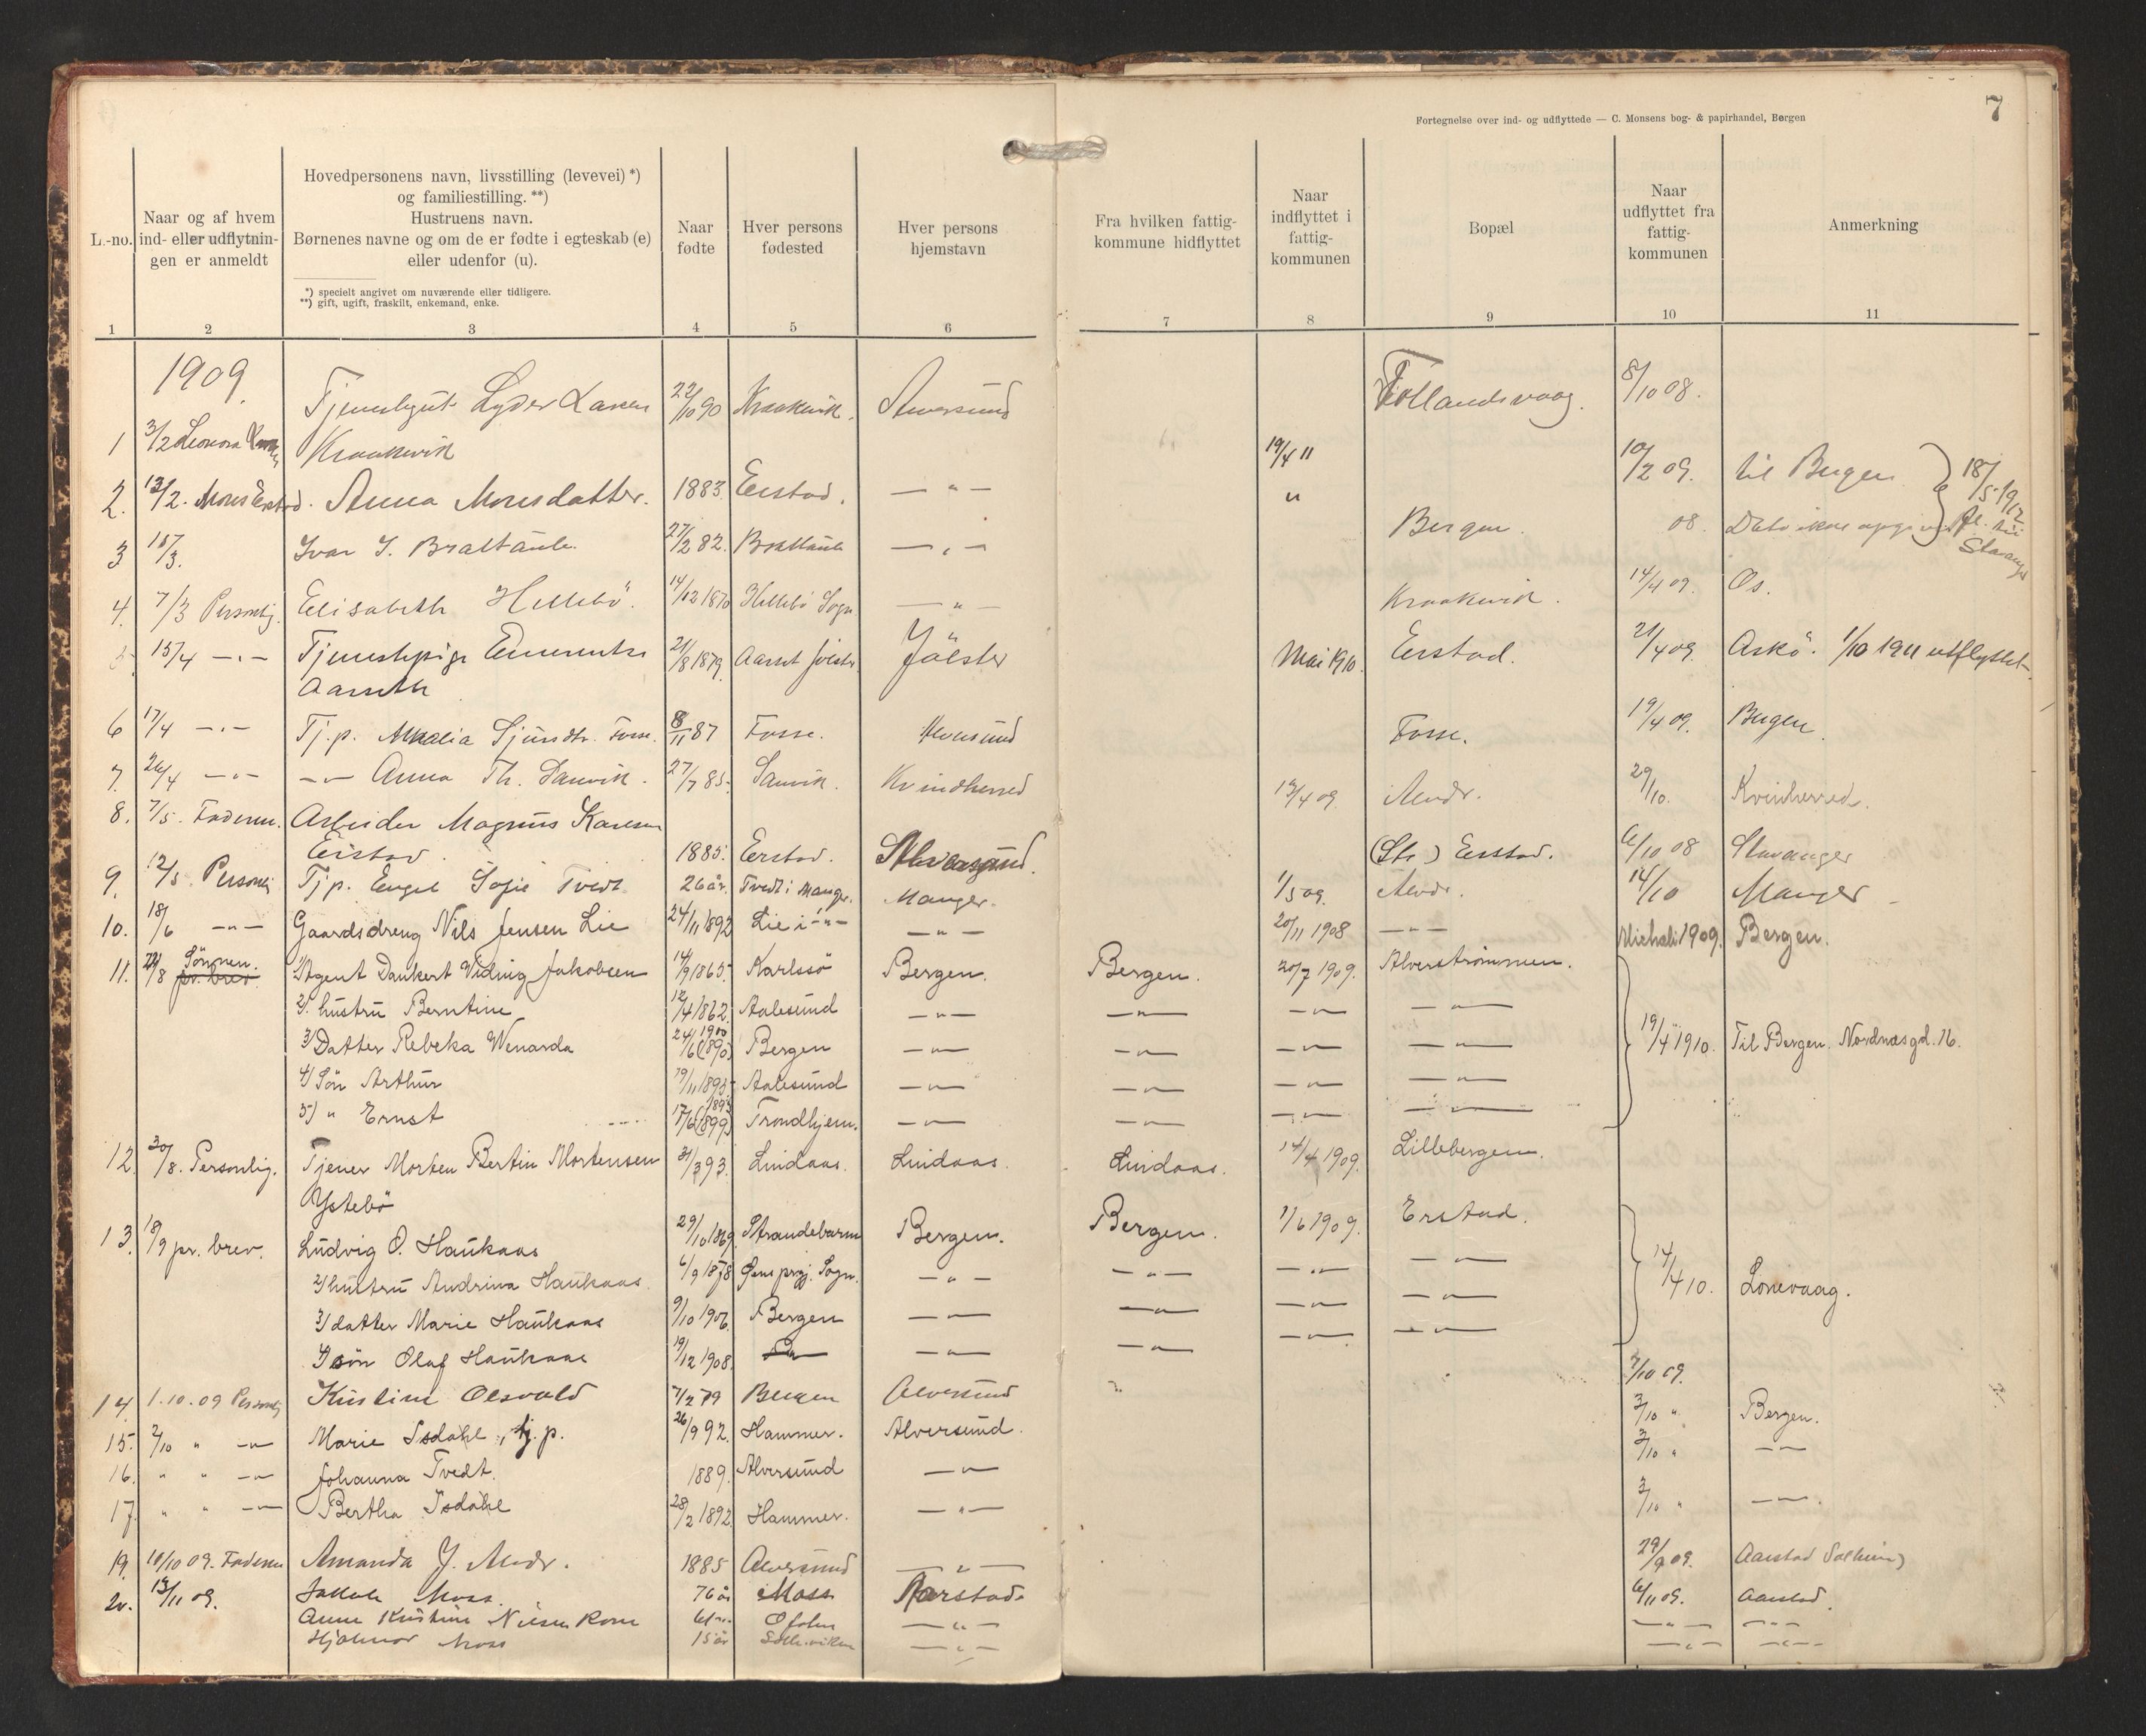 7
Fortegnelse over ind- og udflyttede — C. Monsens bog- & papirhandel, Bergen
L.-no.
Naar og af hvem
ind- eller udflytnin-
gen er anmeldt
Hovedpersonens navn, livsstilling (levevei) *)
og familiestilling. **)
Hustruens navn.
Børnenes navne og om de er fødte i egteskab (e)
eller udenfor (u).
*) specielt angivet om nuværende eller tidligere.
**) gift, ugift, fraskilt, enkemand, enke.
Naar
fødte
Hver persons
fødested
Hver persons
hjemstavn
Fra hvilken fattig-
kommune hidflyttet
Naar
indflyttet i
fattig-
kommunen
Bopæl
Naar
udflyttet fra
fattig-
kommunen
Anmerkning
1 2 3 4 5 6 7 8 9 10 11
1909.
Tjenestegut Lyder 22/10 90 Kraakvik. Alversund 8/10 08.
1 3/2 Leonora Kraakvik 19/4 11
2. 13/2. Mons Eistad. Anna Monsdatter. 1883. Eistad. — " — " 10/2 09. til Bergen 18/5 1912
3 15/3. Ivar J. 27/2 82. — " — Bergen. 08. Dato ikke fl. til Stavanger
4. 7/3 Personlig. Elisabeth Hellebö. 14/12 1870 Hellebö Sogn — " — Kraakvik. 14/4 09. Os.
5 15/4 — " — Tjenestepige 21/8 1879. Aarset Jölster Jölster Mai 1910. Eistad. 21/4 09. Askö. 1/10 1911 utflyttet
6 17/4 — " — Tj.p. Fosse. 8/11 87 Fosse. Alversund Fosse. 19/4 09. Bergen.
7. 26/4 — " — — " — Anna Th. Sanvik. 27/7 85. Sanvik. Kvindherred 13/4 09. 29/10. Kvinherred.
8. 7/5. Faderen. Arbeider Magnus Karlsen
Eistad. 1885. Eistad. Alversund. Eistad. 6/10 08 Stavanger
9. 12/5 Personlig Tj.p. Engel Sofie Tvedt 26 år. Tvedt i Manger. Manger. 1/5 09. 14/10 Manger
10. 18/6 — " — Gaardsdreng Nils Jensen Lie 24/11 1892 Lie i — " — — " — 20/11 1908 — " — Michali 1909. Bergen.
11. 8 Sönnen. pr. brev 1) Agent Dankert Widing Jakobsen 14/9 1865. Karlssö Bergen. Bergen. 20/7 1909. Alverströmmen.
2) hustru Berntine 12/4 1862. Aalesund — " — — " — — " — — " —
3) Datter Rebeka Wenarda 24/6 1900 (1890) Bergen — " — — " — — " — — " — 19/4 1910. Til Bergen. Nordnæsgd. 16.
4) Sön Arthur 19/11 1895 Aalesund — " — — " — — " — — " —
5) " Ernst 17/6 1893 (1899) Trondhjem. — " — — " — — " — — " —
12. 30/8. Personlig. Tjener Morten Bertin Mortensen 31/3 93. Lindaas. Lindaas. Lindaas. 14/4 1909. Lillebergen.
Ystebö
13. 18/9 pr. brev. Ludvig O. Haukaas 29/10 1869. Strandebarm Bergen. Bergen. 1/6 1909. Erstad.
2) hustru Andrina Haukaas 6/9 1878 Sogn. — " — — " — — " — — " — 14/4 10. Lonevaag.
3) datter Marie Haukaas 9/10 1906. Bergen — " — — " — — " — — " —
4) sön Olaf Haukaas 19/12 1908. — " — — " — — " — — " — — " —
14. 1.10.09 Personlig Kristine 7/2 79 Bergen Alversund 3/10 09.
15. 2/10 " — " — Marie Isdahl, tj.p. 26/9 92. Hammer. Alversund 3/10 " Bergen.
16. " " — " — Johanna Tvedt. 1889. Alversund — " — 3/10 " — " —
17. " " — " — Bertha Isdahl 28/2 1892. Hammer. — " — 3/10 " — " —
19. 10/10 09. Faderen Amanda J. 1885 Alversund — " — 29/9 09. Aarstad
20. 13/11 09. Jakob Moss. 76 år Moss Aarstad. 6/11 09. Aarstad.
Anne Kristine Nilsen — " — — " — — " —
Hjalmar Moss 15 år Solheimsviken — " — — " — — " —